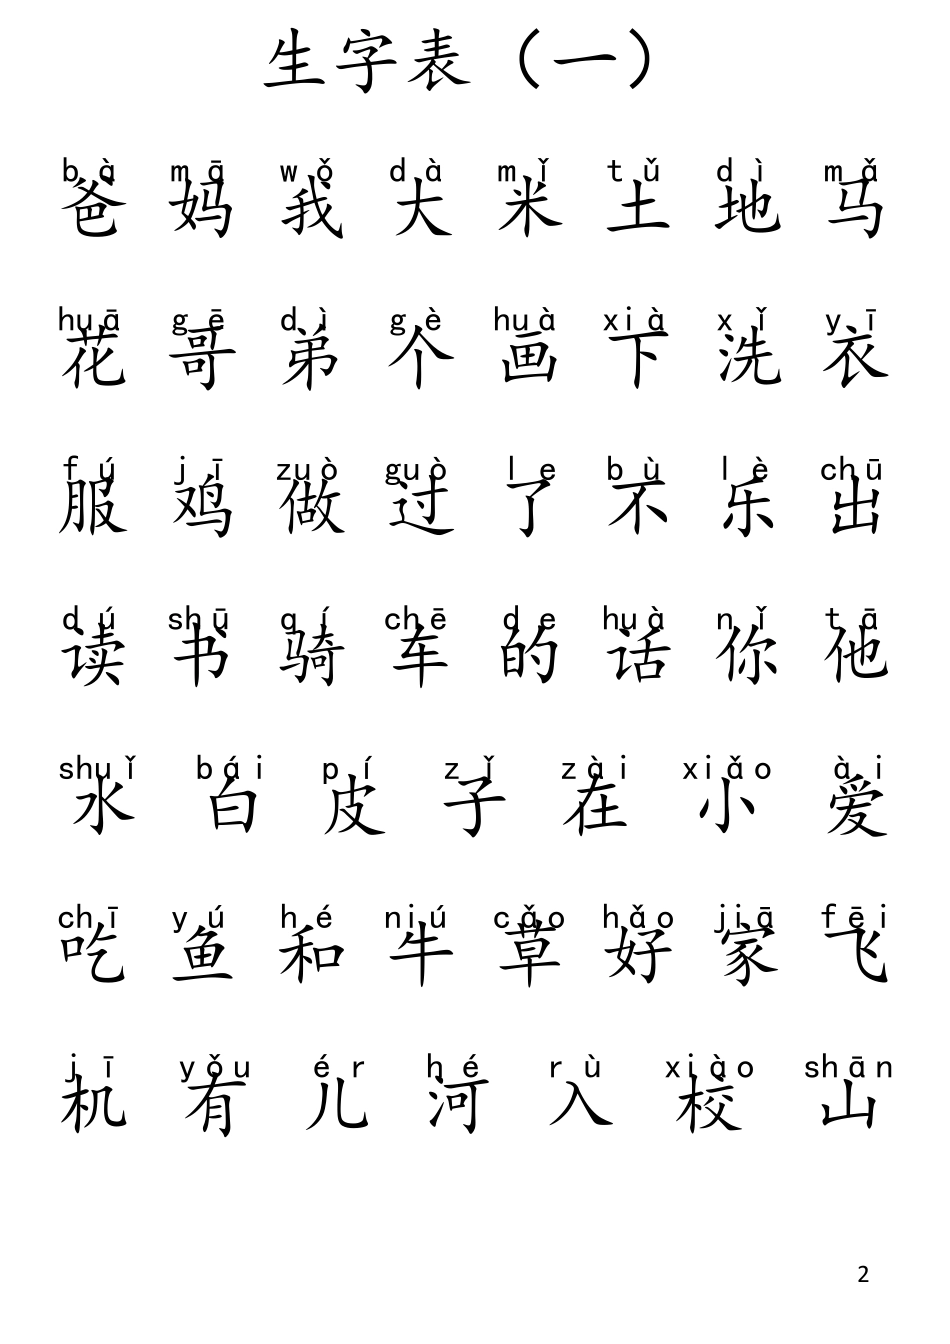 生字表（一）
bà mā wǒ dà mǐ tǔ dì mǎ
爸 妈 我 大 米 土 地 马
huā gē dì gè huà xià xǐ yī
花 哥 弟 个 画 下 洗 衣
fú jī zuò guò le bù lè chū
服 鸡 做 过 了 不 乐 出
dú shū qí chē de huà nǐ tā
读 书 骑 车 的 话 你 他
shuǐ bái pí zǐ zài xiǎo ài
水 白 皮 子 在 小 爱
chī yú hé niú cǎo hǎo jiā fēi
吃 鱼 和 牛 草 好 家 飞
jī yǒu ér hé rù xiào shān
机 有 儿 河 入 校 山
2